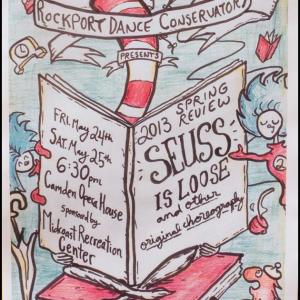 ROCKPORT DANCE CONSERVATORY
PRESENTS
FRI MAY 24th
SAT. MAY 25th
6:30pm
Camden Opera House
sponsored by
Midcoast Recreation
Center
2013 SPRING
REVIEW
SEUSS
IS LOOSE
and other
original choreography